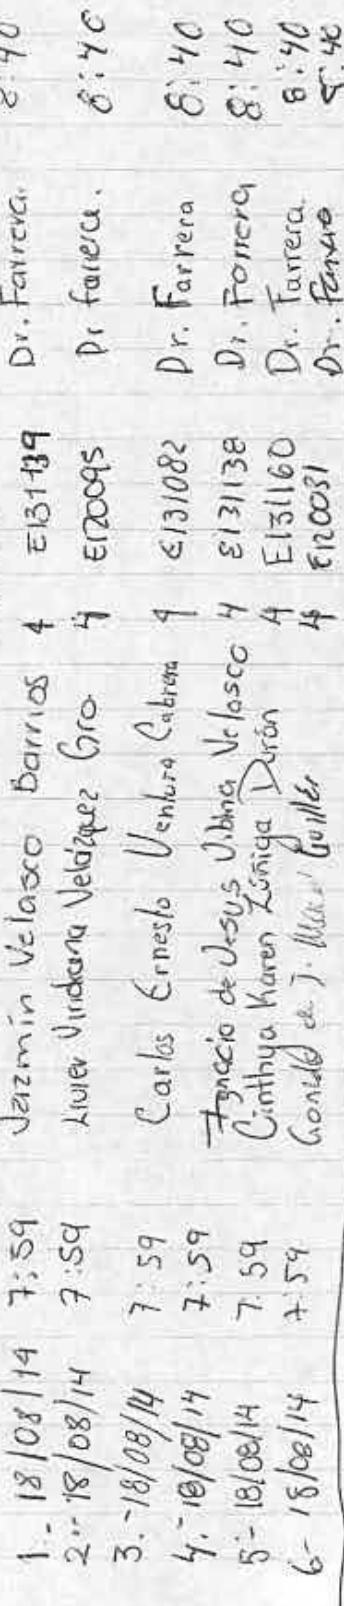 1.- 18/08/14 7:59 Jazmín Velasco Barrios 4 E131139 Dr. Farrera. 8:40
2.- 18/08/14 7:59 Livier Viridiana Velázquez Gro. 4 E120095 Dr farrera. 8:40
3.- 18/08/14 7:59 Carlos Ernesto Ventura Cabrera 4 E131082 Dr. Farrera 8:40
4.- 18/08/14 7:59 Ignacio de Jesus Velasco 4 E131138 Dr. Farrera 8:40
5- 18/08/14 7:59 Cinthya Karen Zúñiga Durán 4 E131160 Dr. Farrera. 8:40
6- 18/08/14 7:59 Gonzalo de J. Guillén 4 E120031 Dr. Farrera 8:40